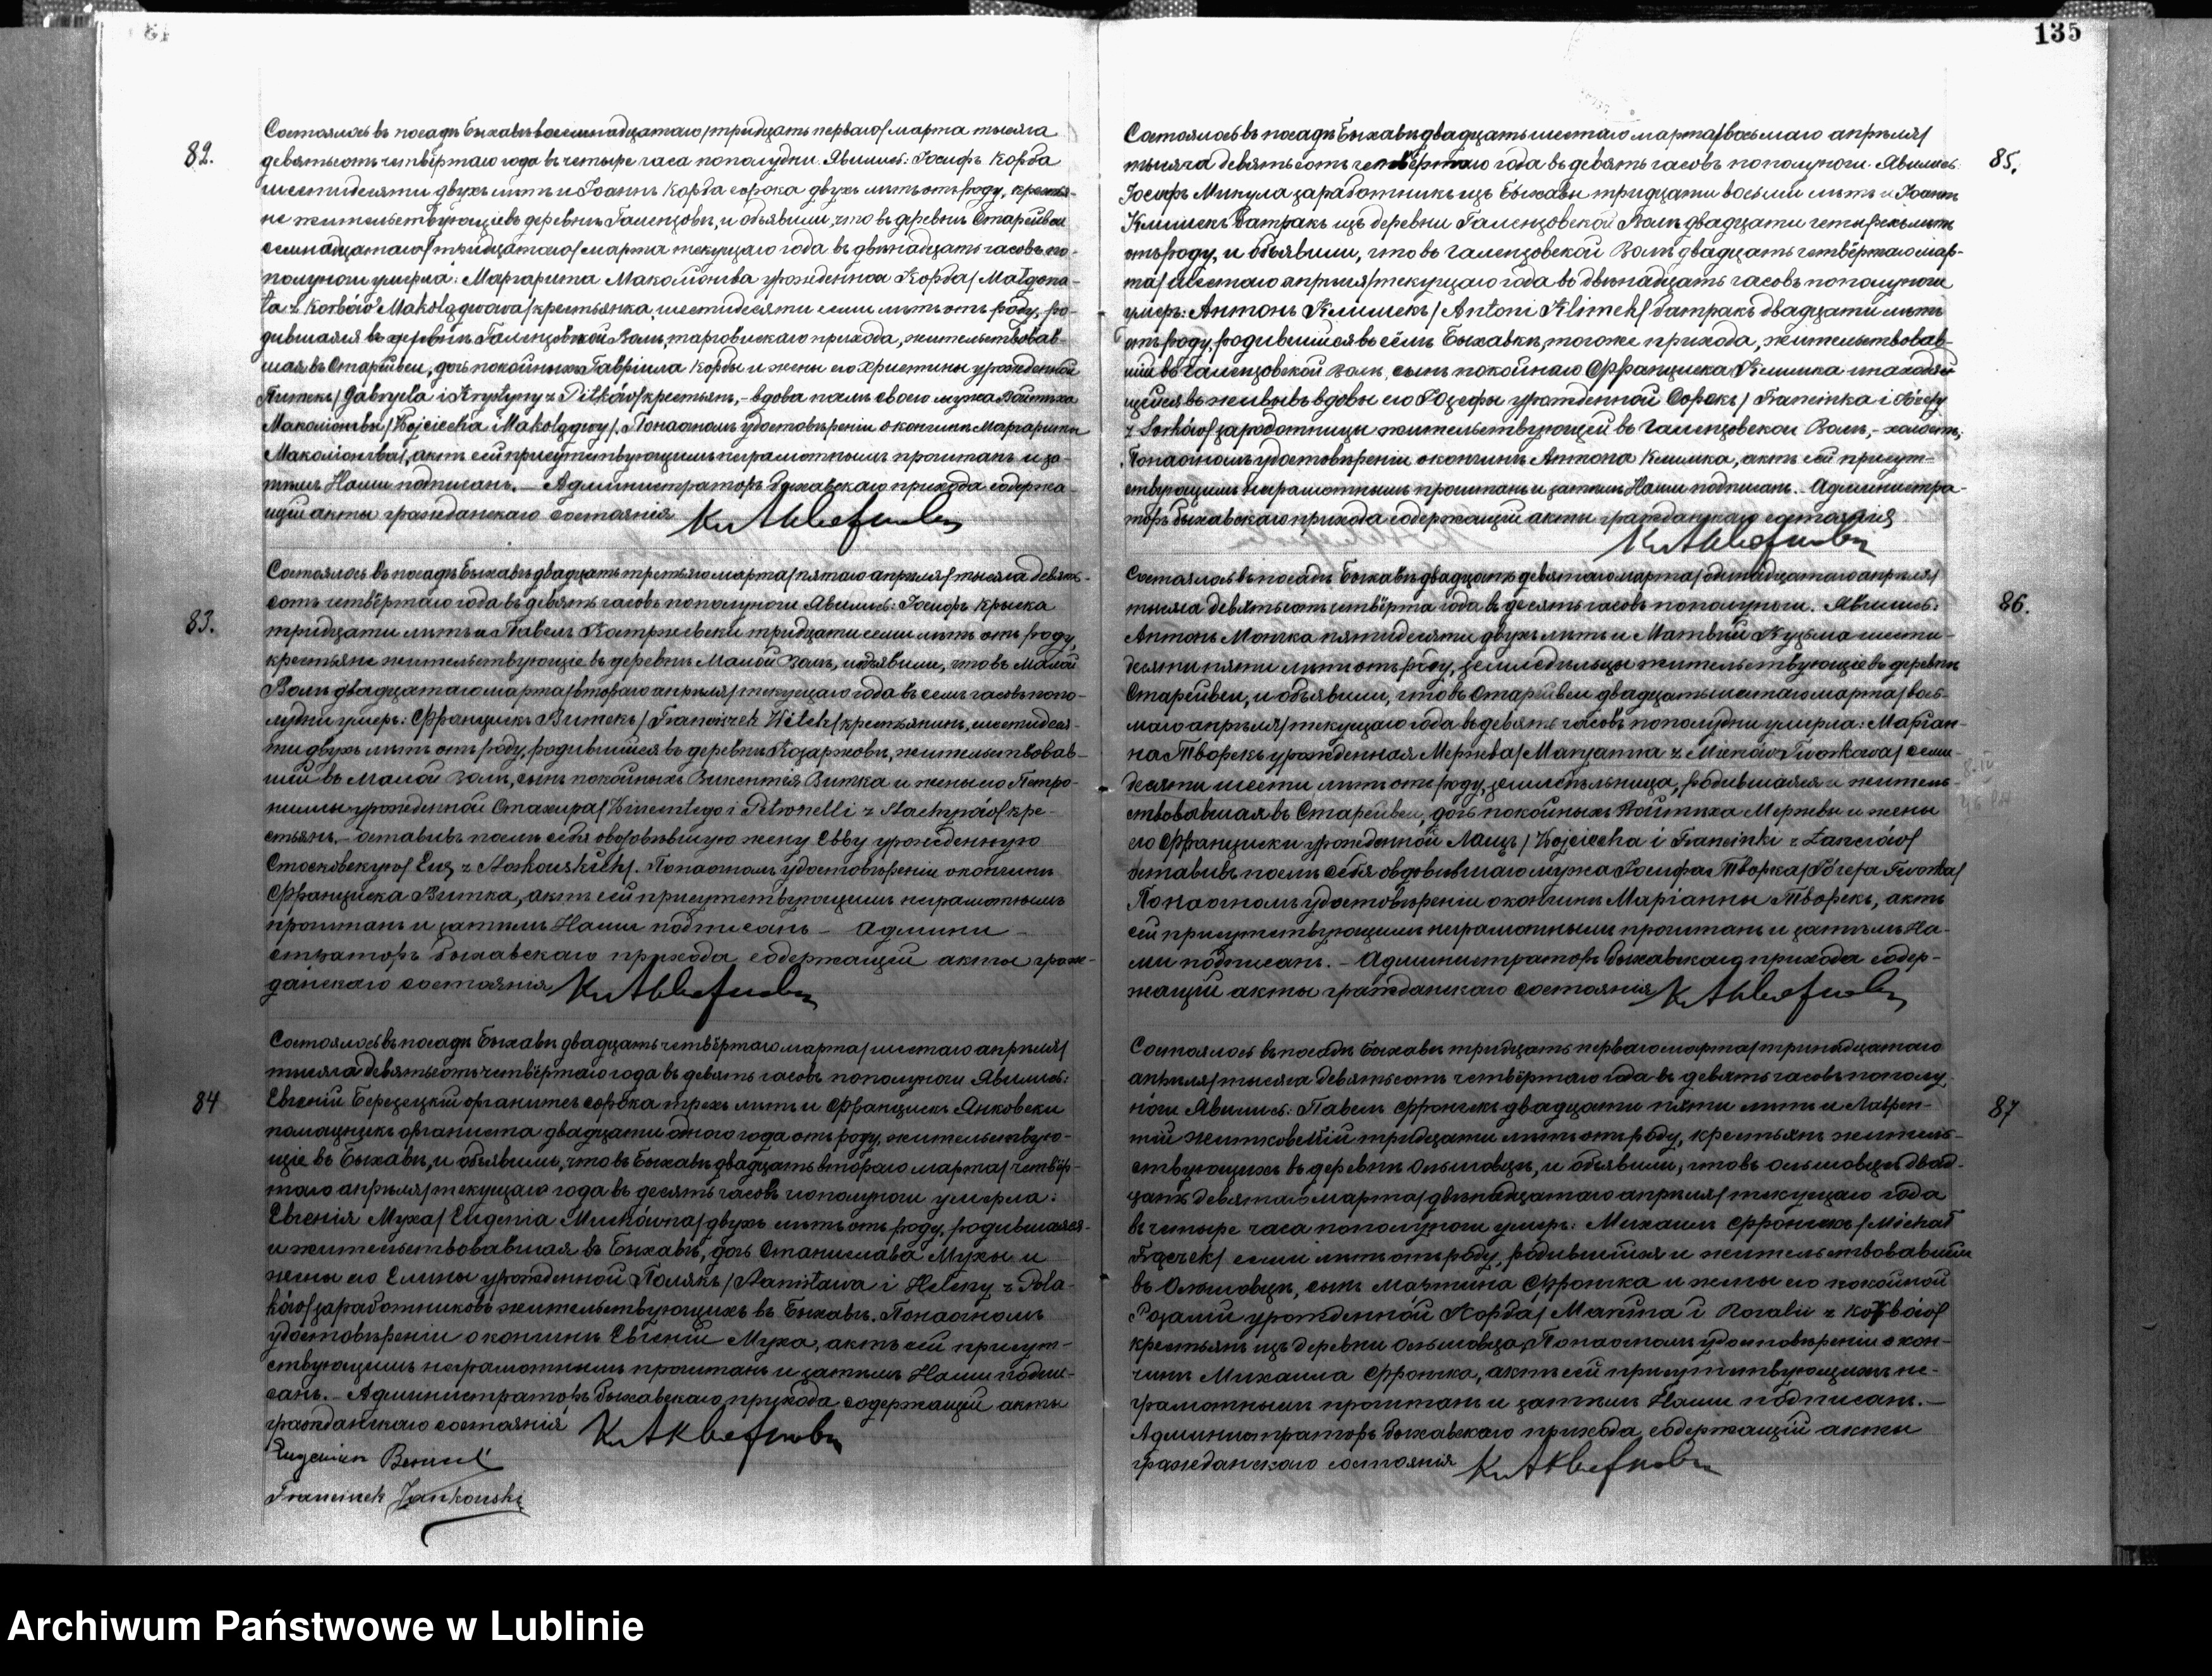 135
82.
Состоялось въ посадѣ Быхавѣ восемнадцатаго/тридцать перваго/марта тысяча
девятьсотъ четвёртаго года въ четыре часа пополудни. Явились: Іосифъ Корба
шестидесяти двухъ лѣтъ и Іоаннъ Корба сорока двухъ лѣтъ отъ роду, крестья-
не жительствующіе въ деревнѣ Галензовѣ, и объявили, что въ деревнѣ Старейвеи
семнадцатаго/тридцатаго/марта текущаго года въ двѣнадцать часовъ по-
полуночи умерла: Маргарита Маколонгва урожденная Корба/Małgorza-
ta z Korbów Makolągwowa/крестьянка, шестидесяти семи лѣтъ отъ роду, ро-
дившаяся въ деревнѣ Галензовской Волѣ, тарговискаго прихода, жительствовав-
шая въ Старейвеи, дочь покойныхъ Гавріила Корбы и жены его Христины урожденной
Питекъ/Gabryela i Krystyny z Pitków/крестьянъ, - вдова послѣ своего мужа Войтѣха
Маколонгвы/Wojciecha Makolągwy/. По настоящемъ удостовѣреніи о кончинѣ Маргариты
Маколонгва, актъ сей присутствующимъ неграмотнымъ прочитанъ и за-
тѣмъ Нами подписанъ. — Администраторъ Быхавскаго прихода содержа-
щій акты гражданскаго состоянія
83.
Состоялось въ посадѣ Быхавѣ двадцать третьяго марта/пятаго апрѣля/тысяча девять-
сотъ четвёртаго года въ девять часовъ пополуночи. Явились: Іосифъ Крыска
тридцати лѣтъ и Павелъ Катржевски тридцати семи лѣтъ отъ роду,
крестьяне жительствующіе въ деревнѣ Малой Волѣ, и объявили, что въ Малой
Волѣ двадцатаго марта/втораго апрѣля/текущаго года въ семь часовъ попо-
лудни умеръ: Францискъ Витекъ/Franciszek Witek/крестьянинъ, шестидеся-
ти двухъ лѣтъ отъ роду, родившійся въ деревнѣ Козаржовѣ, жительствовав-
шій въ Малой Волѣ, сынъ покойныхъ Викентія Витка и жены его Петро-
нелли урожденной Стахыра/Wincentego i Petronelli z Stachyrów/кре-
стьянъ, - оставивъ послѣ себя овдовѣвшую жену Евву урожденную
Стосковскую/Ewę z Stoskowskich/. По настоящемъ удостовѣреніи о кончинѣ
Франциска Витка, актъ сей присутствующимъ неграмотнымъ
прочитанъ и затѣмъ Нами подписанъ — Админи-
страторъ Быхавскаго прихода содержащій акты граж-
данскаго состоянія
84
Состоялось въ посадѣ Быхавѣ двадцать четвёртаго марта/шестаго апрѣля/
тысяча девятьсотъ четвёртаго года въ девять часовъ пополуночи. Явились:
Евгеній Березецкій органистъ сорока трехъ лѣтъ и Францискъ Янковски
помощникъ органиста двадцати одного года отъ роду, жительствую-
щіе въ Быхавѣ, и объявили, что въ Быхавѣ двадцать втораго марта/четвёр-
таго апрѣля/текущаго года въ десять часовъ пополуночи умерла:
Евгенія Муха/Eugenia Muchówna/двухъ лѣтъ отъ роду, родившаяся
и жительствовавшая въ Быхавѣ, дочь Станислава Мухы и
жены его Елены урожденной Полякъ/Stanisława i Heleny z Pola-
ków/заработниковъ жительствующихъ въ Быхавѣ. По настоящемъ
удостовѣреніи о кончинѣ Евгеніи Муха, актъ сей присут-
ствующимъ неграмотнымъ прочитанъ и затѣмъ Нами подпи-
санъ. — Администраторъ Быхавскаго прихода содержащій акты
гражданскаго состоянія
Franciszek Jankowski
85.
Состоялось въ посадѣ Быхавѣ двадцать шестаго марта/восьмаго апрѣля/
тысяча девятьсотъ четвёртаго года въ девять часовъ пополуночи. Явились
Іосифъ Микула заработникъ изъ Быхавы тридцати восьми лѣтъ и Іоаннъ
Климекъ батракъ изъ деревни Галензовской Волѣ двадцати четырехъ лѣтъ
отъ роду, и объявили, что въ Галензовской Волѣ двадцать четвёртаго мар-
та/шестаго апрѣля/текущаго года въ двѣнадцать часовъ пополуночи
умеръ: Антонъ Климекъ/Antoni Klimek/батракъ двадцати лѣтъ
отъ роду, родившійся въ сёлѣ Быхавкѣ, тогоже прихода, жительствовав-
шій въ Галензовской Волѣ, сынъ покойнаго Франциска Климка и находя-
щейся въ живыхъ вдовы его Іозефы урожденной Сорокъ/Franciszka i Józefy
z Soroków/заработницы жительствующей въ Галензовской Волѣ, - холостъ,
По настоящемъ удостовѣреніи о кончинѣ Антона Климка, актъ сей присут-
ствующимъ неграмотнымъ прочитанъ и затѣмъ Нами подписанъ. — Администра-
торъ Быхавскаго прихода содержащій акты гражданскаго состоянія
86.
Состоялось въ посадѣ Быхавѣ двадцать девятаго марта/одинадцатаго апрѣля/
тысяча девятьсотъ четвёрта года въ десять часовъ пополуночи. Явились:
Антонъ Мончка пятидесяти двухъ лѣтъ и Матвѣй Кузьма шести-
десяти пяти лѣтъ отъ роду, земледѣльцы жительствующіе въ деревнѣ
Старейвеи, и объявили, что въ Старейвеи двадцать шестаго марта/вось-
маго апрѣля/текущаго года въ девять часовъ пополудни умерла: Маріан-
на Творекъ урожденная Мержва/Maryanna z Mierzwów Tworkowa/семи-
десяти шести лѣтъ отъ роду, земледѣльница, родившаяся и житель-
ствовавшая въ Старейвеи, дочь покойныхъ Войтѣха Мержвы и жены
его Франциски урожденной Ланцъ/Wojciecha i Franciszki z Łanców/
оставивъ послѣ себя овдовѣвшаго мужа Іосифа Творка/Józefa Tworka/
По настоящемъ удостовѣреніи о кончинѣ Маріанны Творекъ, актъ
сей присутствующимъ неграмотнымъ прочитанъ и затѣмъ На-
ми подписанъ. — Администраторъ Быхавскаго прихода содер-
жащій акты гражданскаго состоянія
87
Состоялось въ посадѣ Быхавѣ тридцать перваго марта/тринадцатаго
апрѣля/тысяча девятьсотъ четвёртаго года въ девять часовъ пополу-
ночи. Явились: Павелъ Фрончекъ двадцати пяти лѣтъ и Лаврен-
тій Житковскій тридцати лѣтъ отъ роду, крестьянъ житель-
ствующихъ въ деревнѣ Ольшовцѣ, и объявили, что въ Ольшовцѣ двад-
цать девятаго марта/двѣнадцатаго апрѣля/текущаго года
въ четыре часа пополуночи умеръ: Михаилъ Фрончекъ/Michał
Frączek/семи лѣтъ отъ роду, родившійся и жительствовавшій
въ Ольшовцѣ, сынъ Мартина Фрончка и жены его покойной
Розаліи урожденной Корба/Marcina i Rozalii z Korbów/
крестьянъ изъ деревни Ольшовца. По настоящемъ удостовѣреніи о кон-
чинѣ Михаила Фрончка, актъ сей присутствующимъ не-
грамотнымъ прочитанъ и затѣмъ Нами подписанъ. —
Администраторъ Быхавскаго прихода содержащій акты
гражданскаго состоянія
Archiwum Państwowe w Lublinie